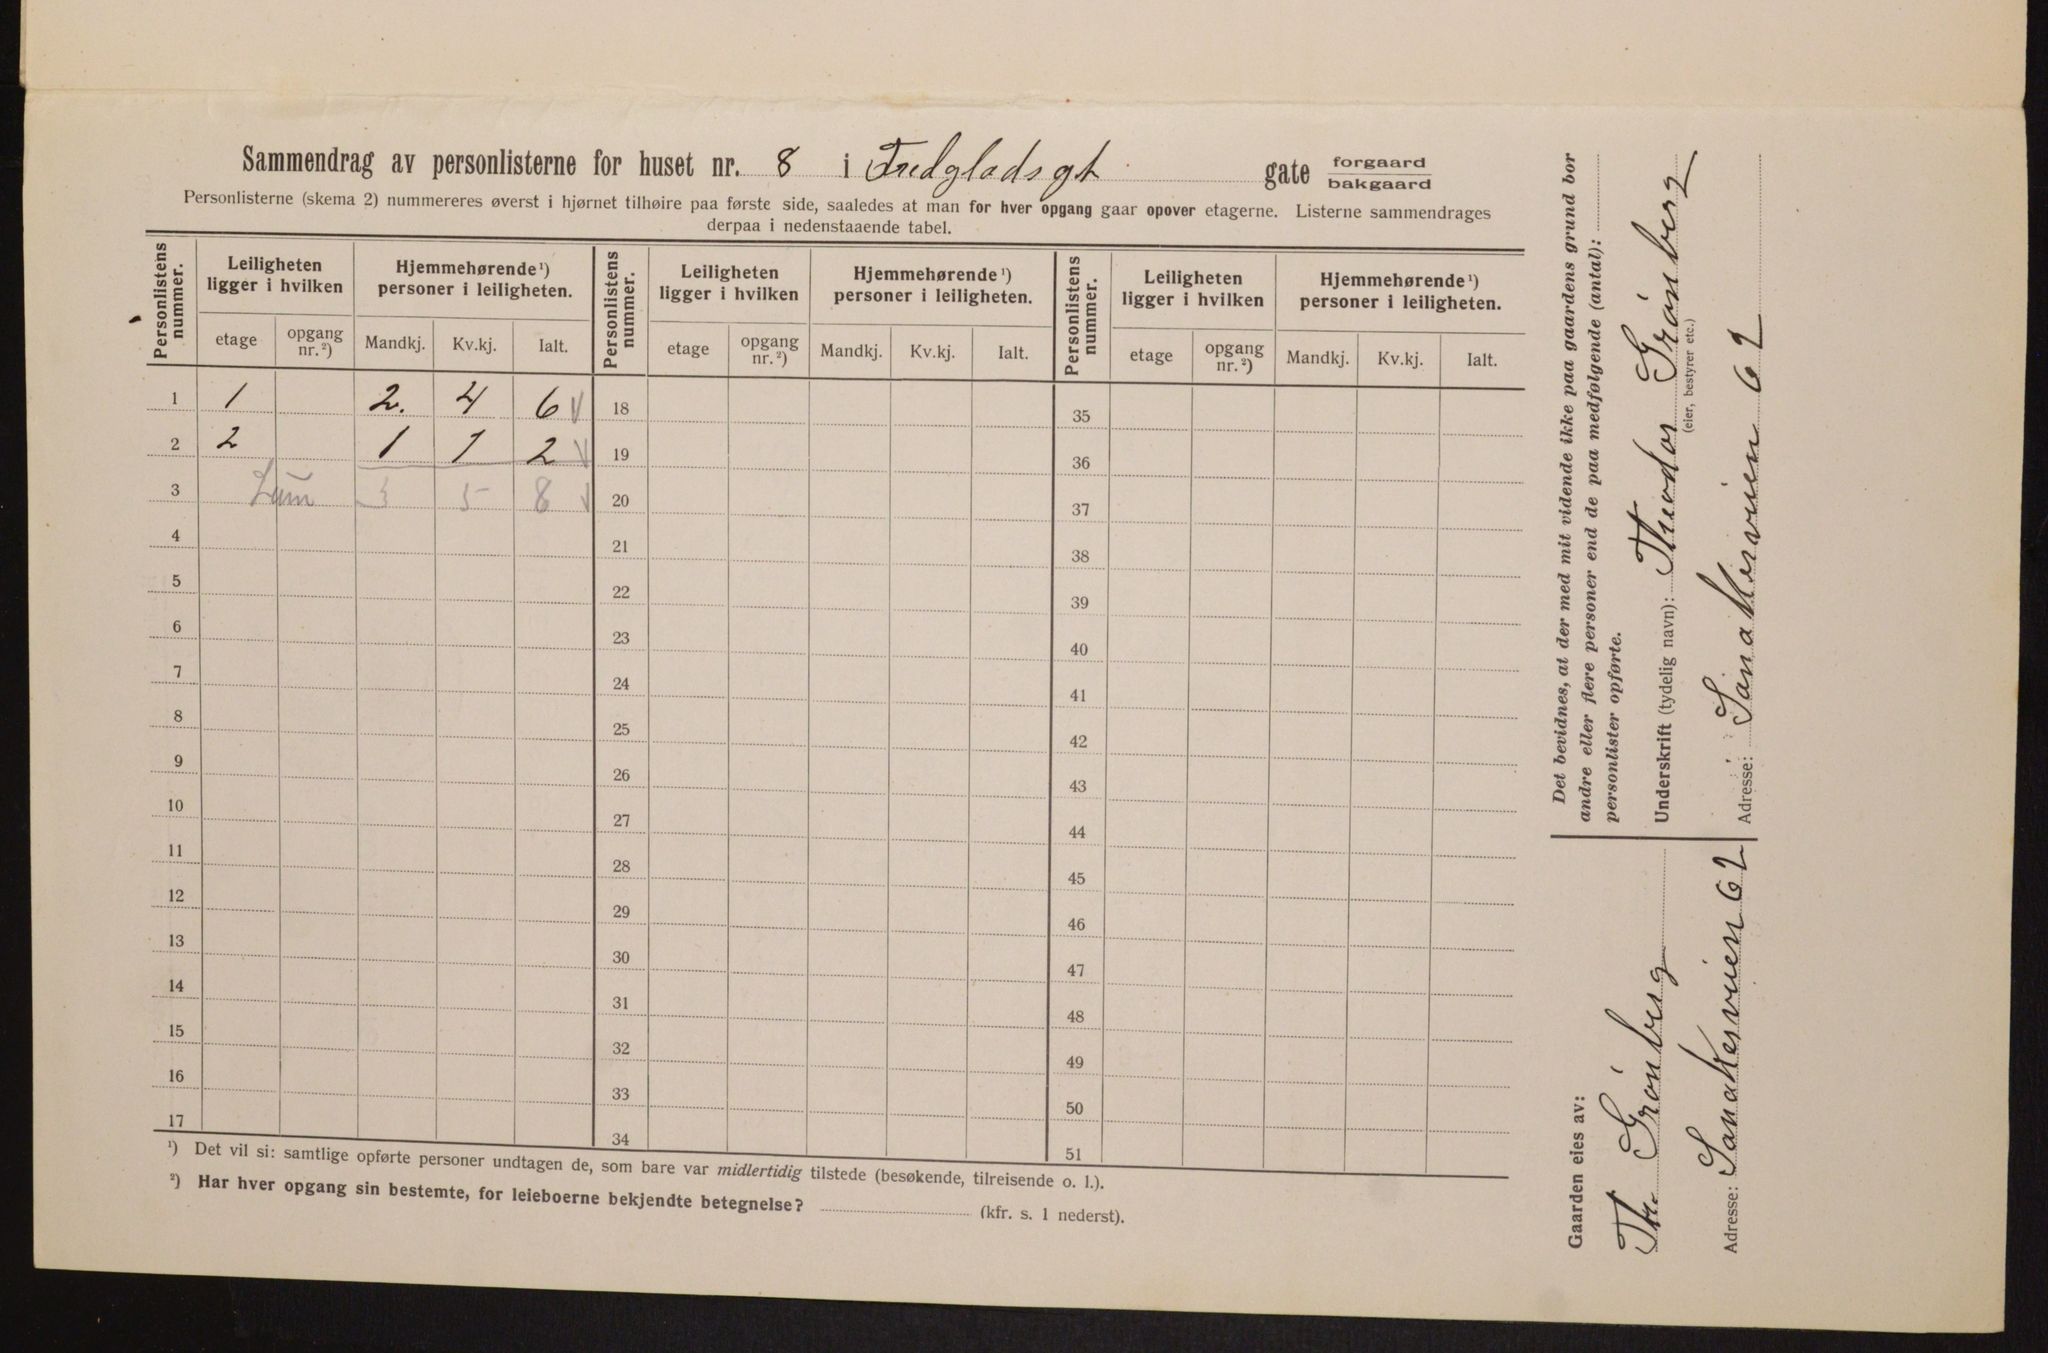 Sammendrag av personlisterne for huset nr. 8 i Fredgladsgt gate forgaard bakgaard
Personlisterne (skema 2) nummereres øverst i hjørnet tilhøire paa første side, saaledes at man for hver opgang gaar opover etagerne. Listerne sammendrages
derpaa i nedenstaaende tabel.
Personlistens nummer. Leiligheten ligger i hvilken Hjemmehørende ¹) personer i leiligheten. Personlistens nummer. Leiligheten ligger i hvilken Hjemmehørende ¹) personer i leiligheten. Personlistens nummer. Leiligheten ligger i hvilken Hjemmehørende ¹) personer i leiligheten.
etage opgang nr. ²) Mandkj. Kv.kj. Ialt. etage opgang nr. ²) Mandkj. Kv.kj. Ialt. etage opgang nr. ²) Mandkj. Kv.kj. Ialt.
1 1 2. 4 6 18 35
2 2 1 1 2 19 36
3 3 5 8 20 37
4 21 38
5 22 39
6 23 40
7 24 41
8 25 42
9 26 43
10 27 44
11 28 45
12 29 46
13 30 47
14 31 48
15 32 49
16 33 50
17 34 51
¹) Det vil si: samtlige opførte personer undtagen de, som bare var midlertidig tilstede (besøkende, tilreisende o. l.).
²) Har hver opgang sin bestemte, for leieboerne bekjendte betegnelse? (kfr. s. 1 nederst).
Det bevidnes, at der med mit vidende ikke paa gaardens grund bor
andre eller flere personer end de paa medfølgende (antal):
personlister opførte.
Underskrift (tydelig navn): Theodor Grönberg
(eier, bestyrer etc.)
Adresse: Sandakerveien 62
Gaarden eies av:
Th. Grönberg
Adresse: Sandakerveien 62